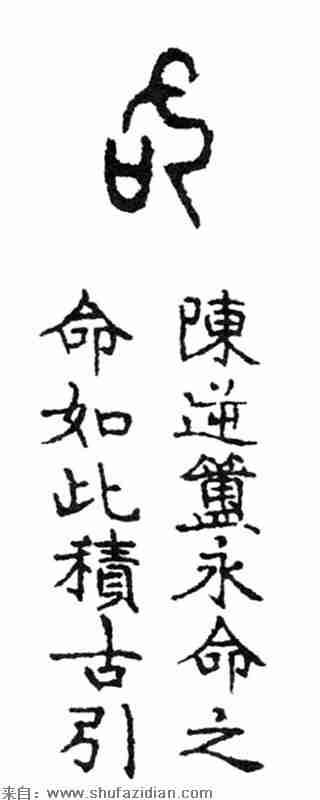 命
陳逆簠永命之
命如此積古引
来自：www.shufazidian.com